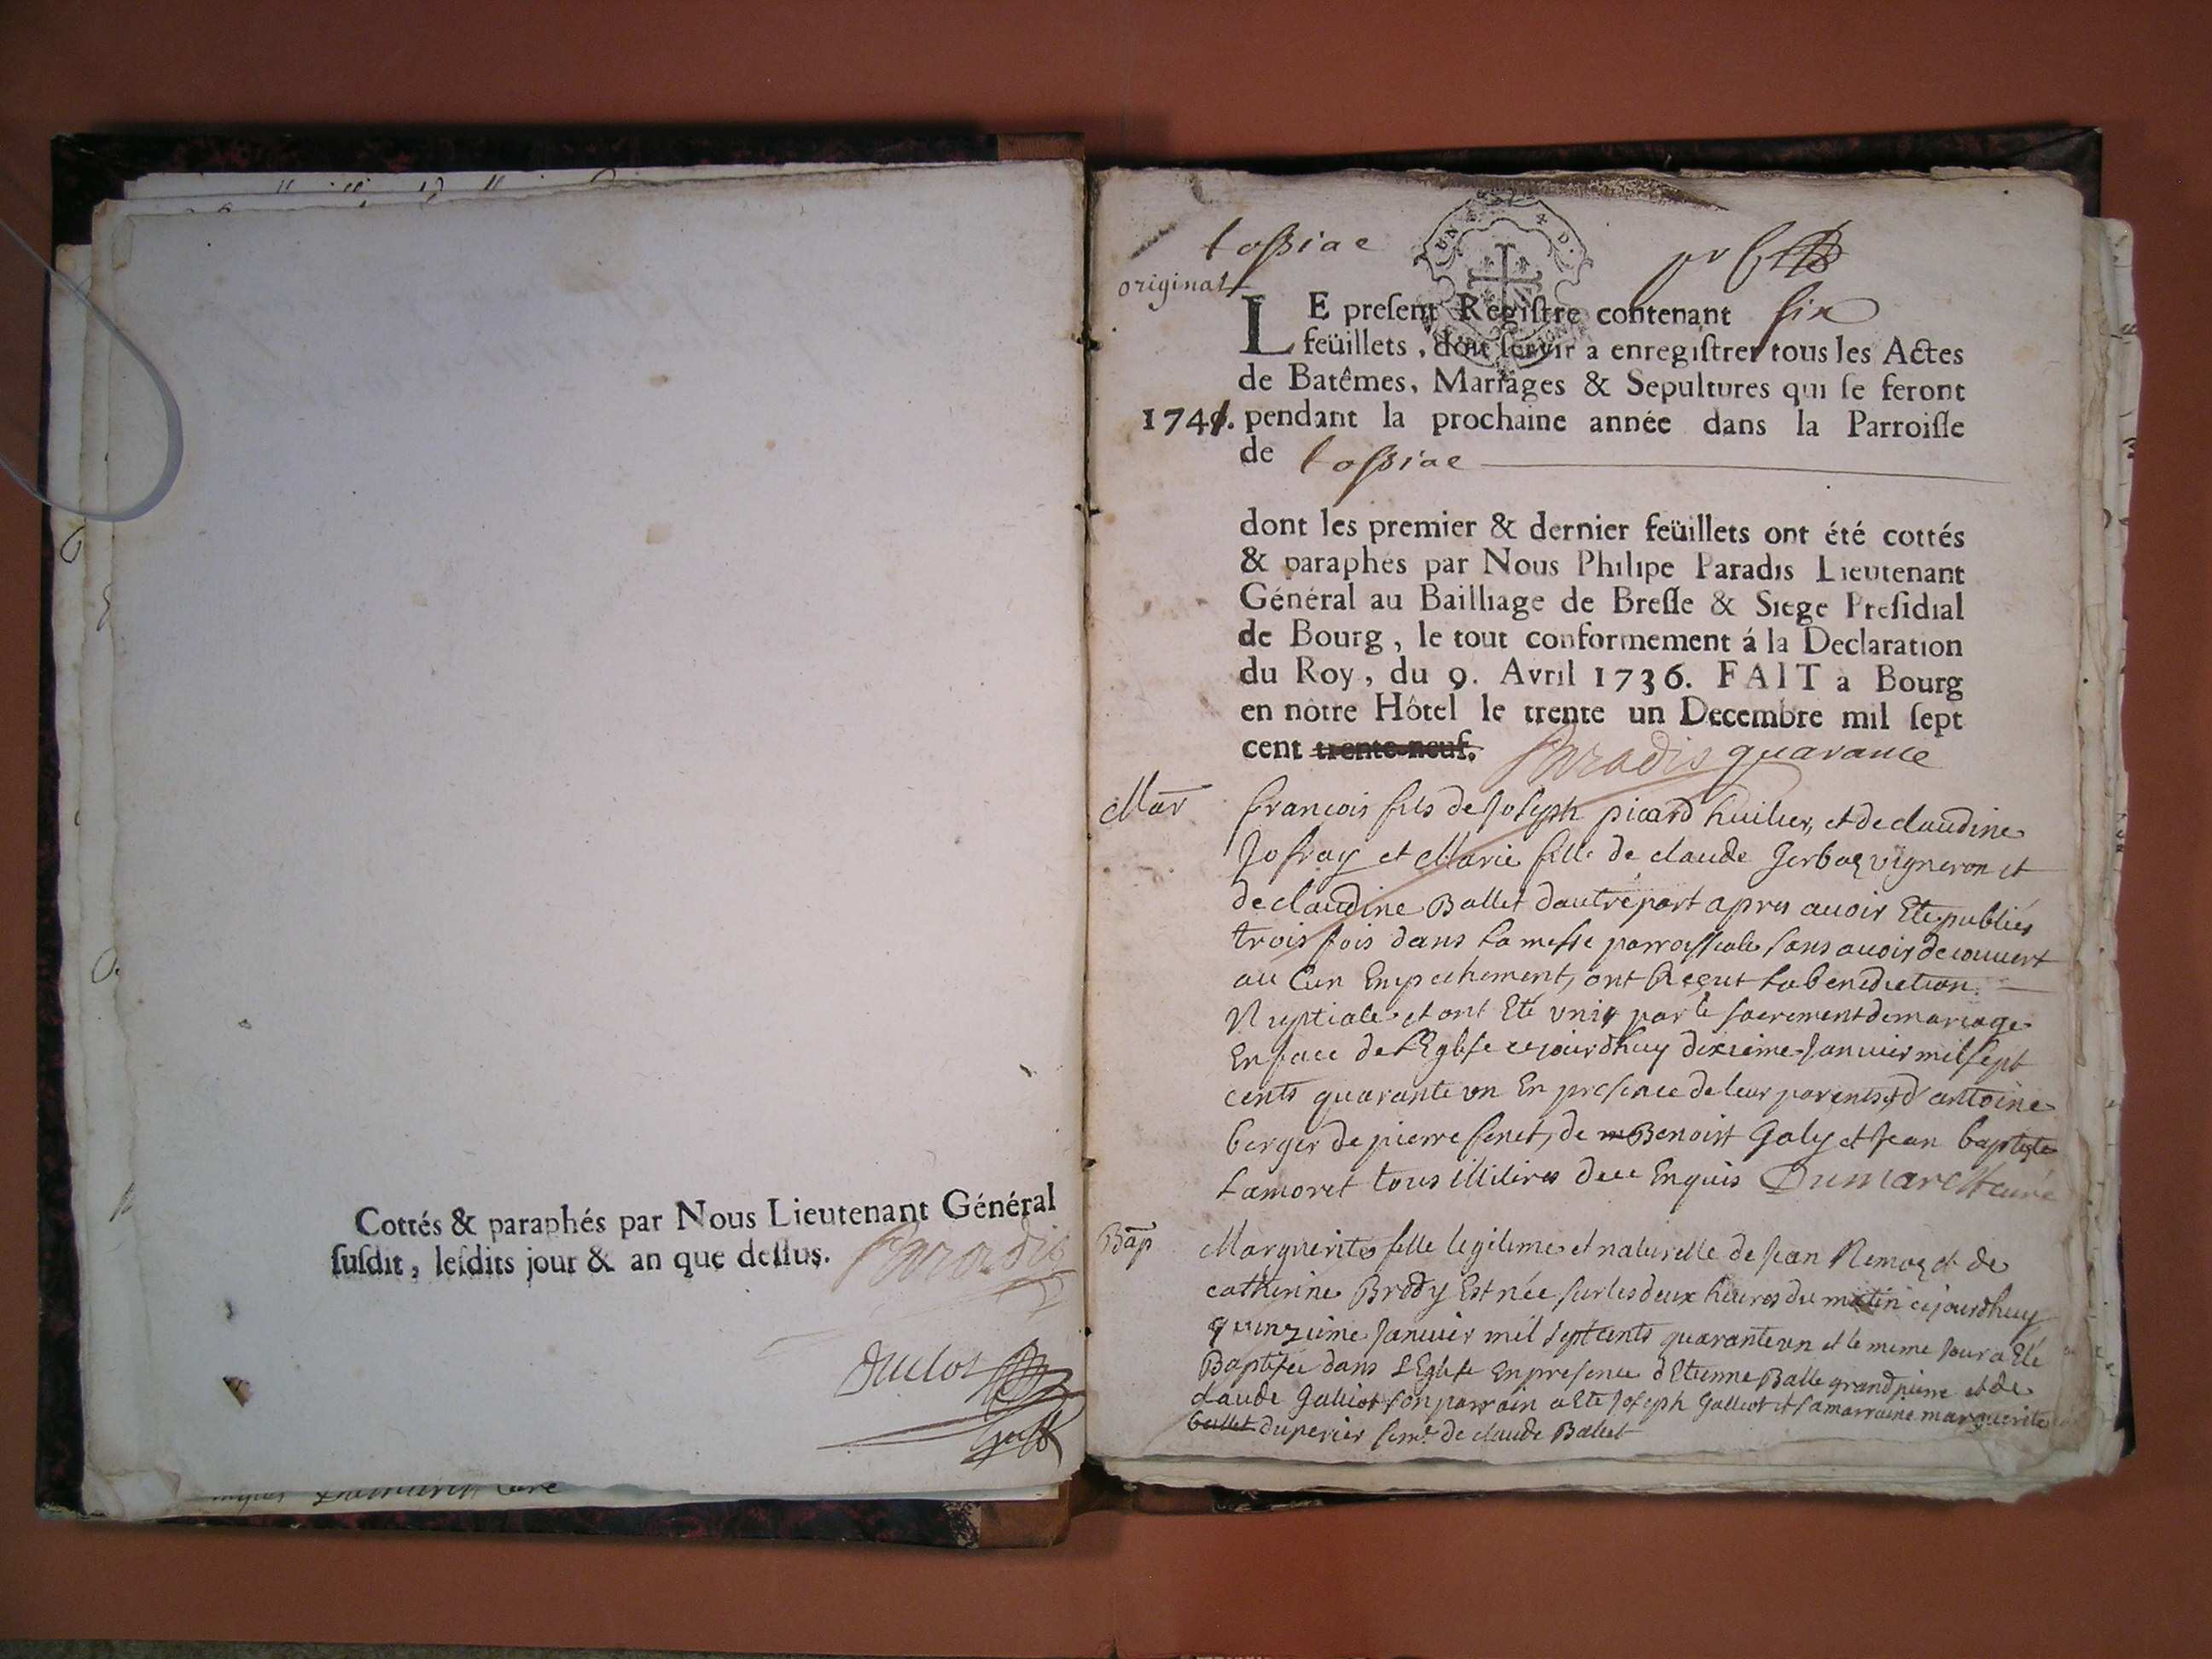 Cottés & paraphés par Nous Lieutenant Général
ſuſdit, leſdits jour & an que deſſus. Paradis
Duclos
Loßiac
original
LE preſent Regiſtre contenant ſix
feüillets, doit ſervir a enregiſtrer tous les Actes
de Batêmes, Mariages & Sepultures qui ſe feront
1741. pendant la prochaine année dans la Parroiſſe
de Loßiac
dont les premier & dernier feüillets ont été cottés
& paraphés par Nous Philipe Paradis Lieutenant
Général au Bailliage de Breſſe & Siege Preſidial
de Bourg, le tout conformement á la Declaration
du Roy, du 9. Avril 1736. FAIT a Bourg
en nôtre Hôtel le trente un Decembre mil ſept
cent trente-neuf. Paradis quarante
Mar françois fils de Joseph picard huilier, et de claudine
Jofray et Marie fille de claude Gerbaz vigneron et
de claudine Ballet dautrepart apres auoir Ete publiés
trois fois dans la messe parroissiale sans auoir decouuert
au Cun Empechement, ont Reçut la benediction
Nuptiale et ont Eté vnis par le sacrement de mariage
En face de L'Eglise cejourdhuy dixieme Januier mil sept
cents quarante vn En presence de leur parents, d'antoine
berger de pierre fenet, de Benoist Galy et Jean baptiste
Lamoret tous illiteres Dece Enquis Dumarest curé
Bap Marguerite fille legitime et naturelle de Jean Remoz et de
catherine Brody Est née sur les deux heures du matin cejourdhuy
quinzieme Januier mil sept cents quarante vn et le meme Jour a Eté
Baptisée dans L'Eglise En presence d'Etienne Balle grandpierre et de
claude Galliot son parrain a Ete Joseph Galliot et sa marraine marguerite
ballet duperier fem.e de claude Ballet